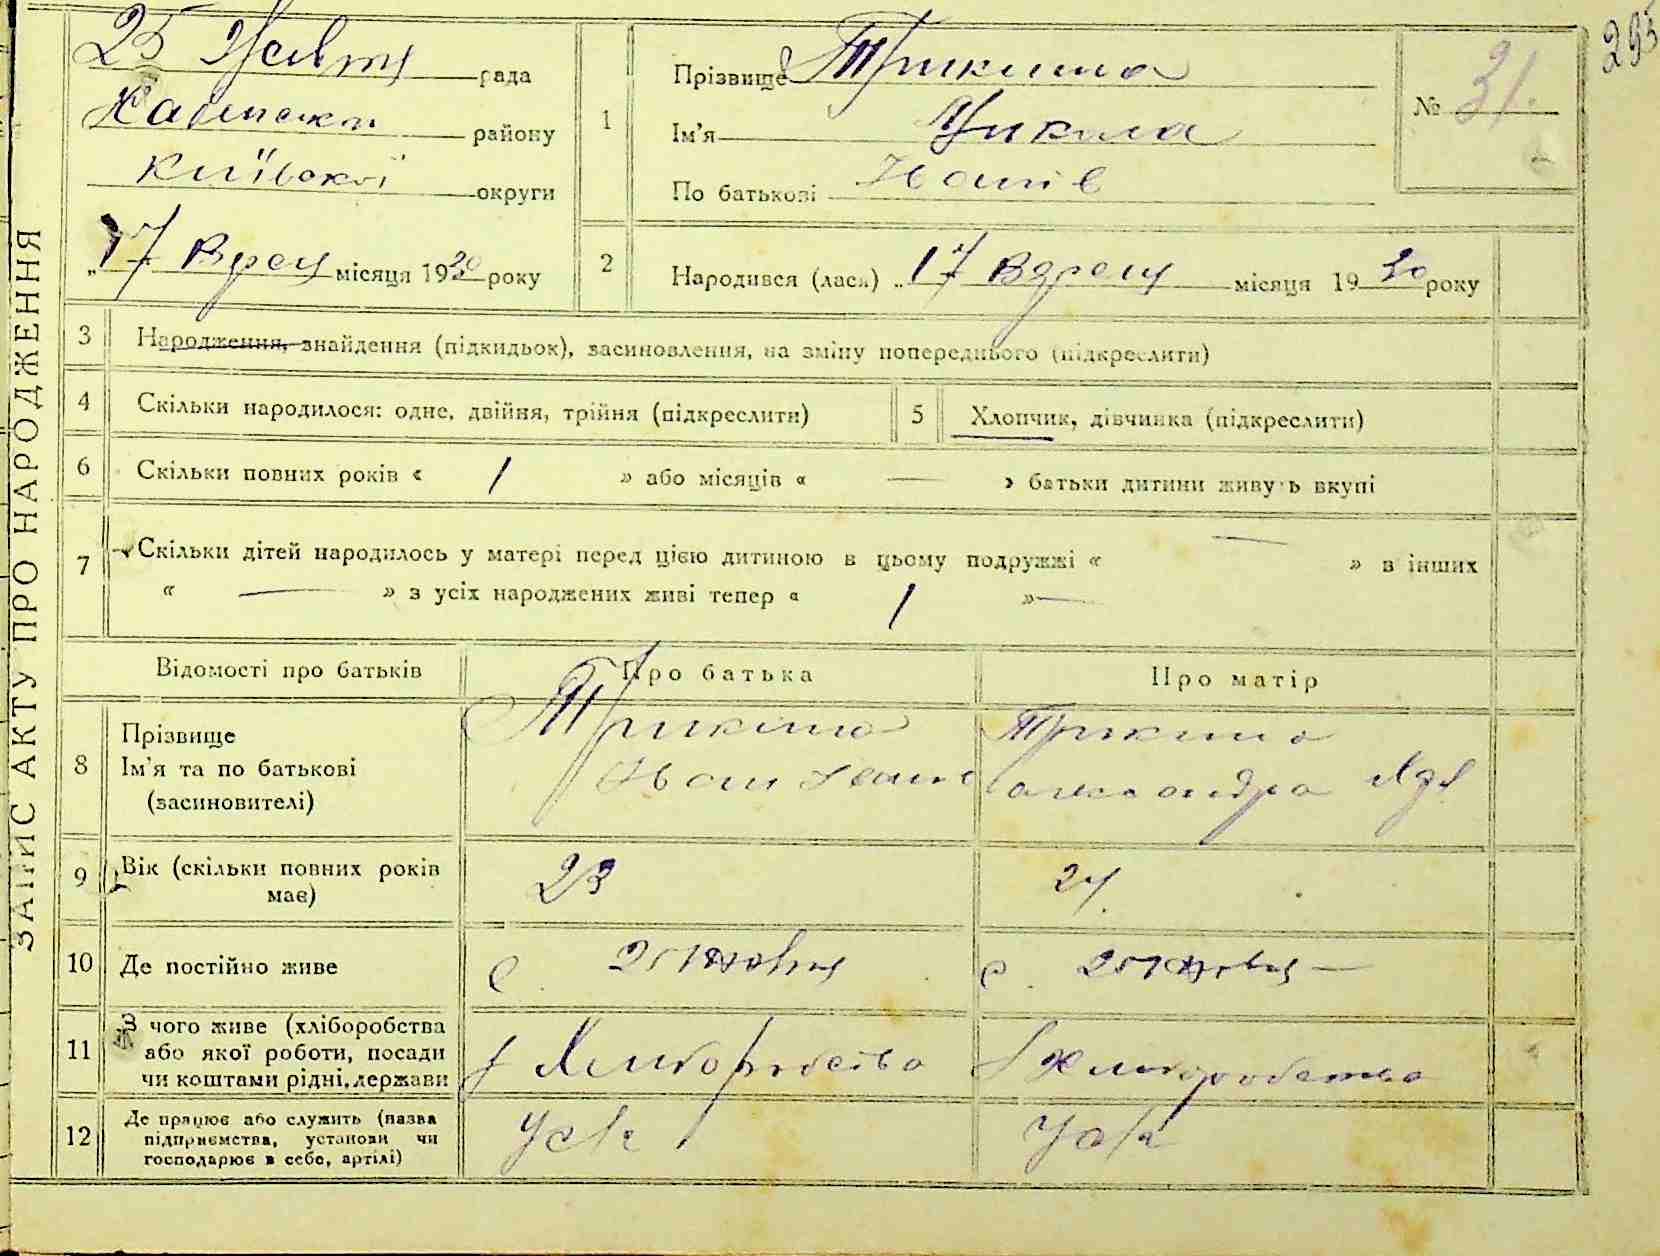 ЗАПИС АКТУ ПРО НАРОДЖЕННЯ
25 Жовтн рада
району
Київської округи
„17 Врес місяця 1930 року
1
Прізвище Трикиша
Ім'я Микола
По батькові Іванів
№ 31.
295
2
Народився (лася) „17 Вересн місяця 1930 року
3 Народження, знайдення (підкидьок), засиновлення, на зміну попереднього (підкреслити)
4 Скільки народилося: одне, двійня, трійня (підкреслити)
5 Хлопчик, дівчинка (підкреслити)
6 Скільки повних років « 1 » або місяців « — » батьки дитини живуть вкупі
7 Скільки дітей народилось у матері перед цією дитиною в цьому подружжі « — » в інших
« — » з усіх народжених живі тепер « 1 » —
Відомості про батьків Про батька Про матір
8 Прізвище
Ім'я та по батькові
(засиновителі)
Трикиша
Іван Іван
Трикиша
Александра
9 Вік (скільки повних років
має)
23
24
10 Де постійно живе
с. 25 Жовтн
с. 25 Жовтн —
11 З чого живе (хліборобства
або якої роботи, посади
чи коштами рідні, держави
Хліборобство
Хліборобство
12 Де працює або служить (назва
підприємства, установи чи
господарює в себе, артілі)